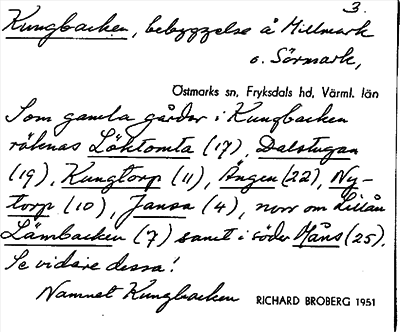 3.
Kungbacken, bebyggelse å Millmark
o. Sörmark,
Östmarks sn, Fryksdals hd, Värml. län
Som gamla gårdar i Kungbacken
räknas Löktomta (17), Dalstugan
(19), Kungtorp (11), Ängen (22), Ny-
torp (10), Jansa (4), norr om Lillån
Lämbacken (7) samt i söder Måns (25).
Se vidare dessa!
Namnet Kungbacken
RICHARD BROBERG 1951